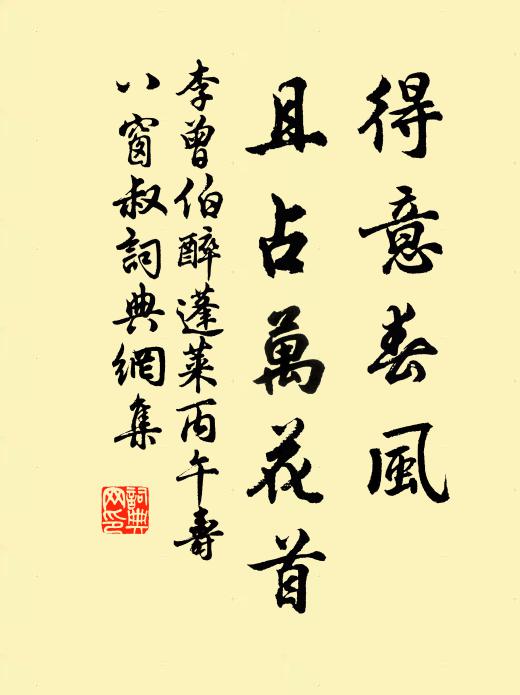 得意春風
且占萬花首
李曾伯醉蓬萊丙午壽
八窗叔詞典網集
詞典網印